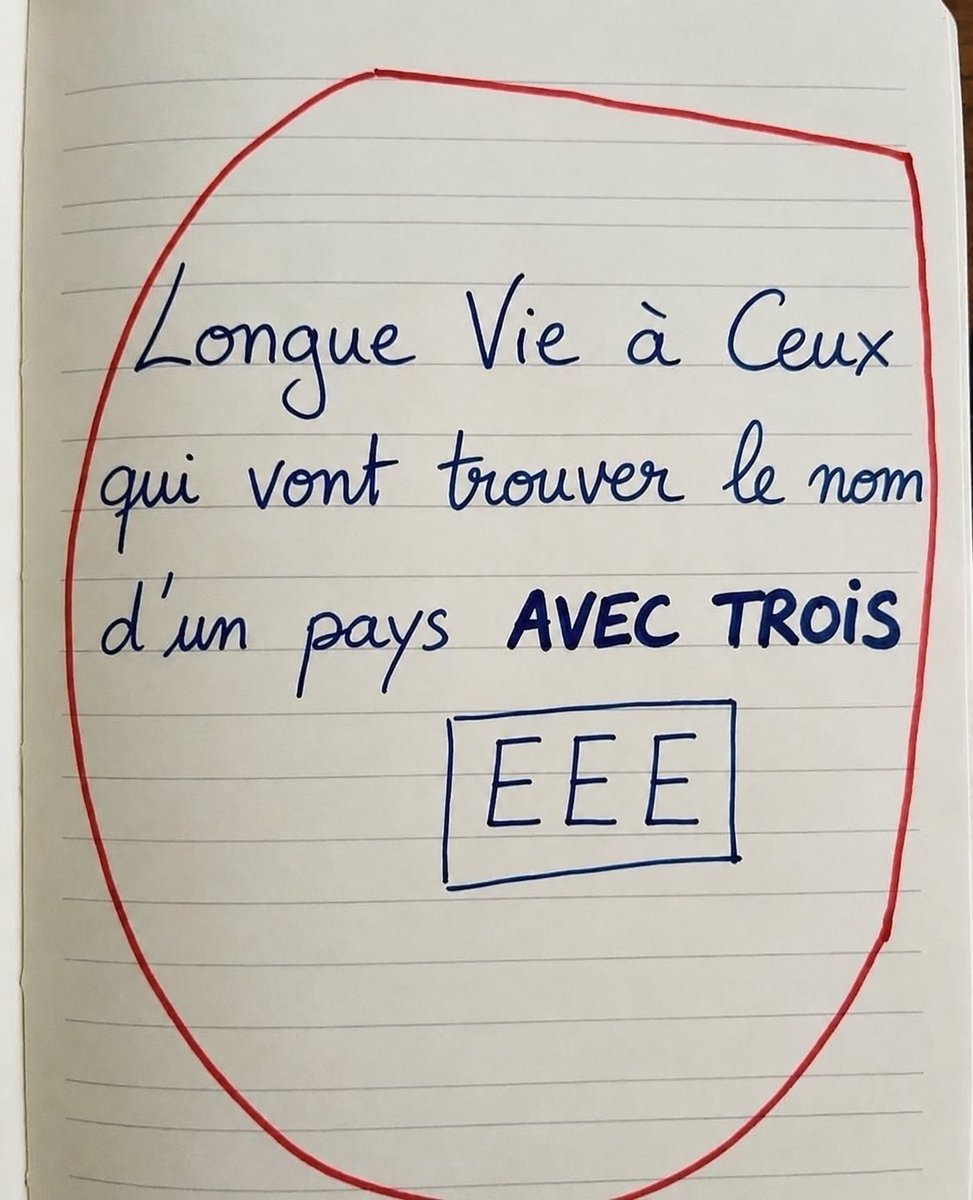 Longue Vie à Ceux
qui vont trouver le nom
d'un pays AVEC TROIS
EEE